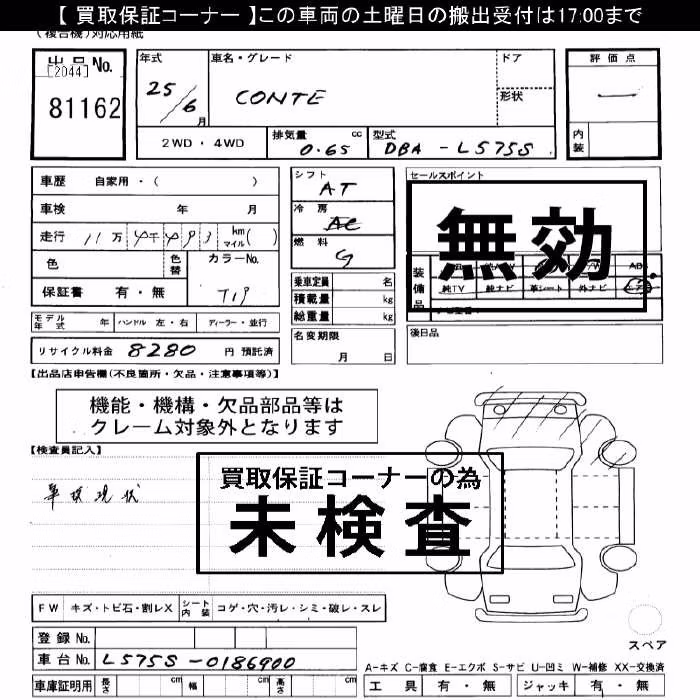 【 買取保証コーナー 】この車両の土曜日の搬出受付は17:00まで
(複合機)対応用紙
出品No.
[2044]
81162
年式 25/6月
車名・グレード CONTE
ドア
形状
評価点 —
内装
2WD・4WD
排気量 cc 0.65
型式 DBA-L575S
車歴 自家用・( )
車検 年 月
走行 11万 km マイル( )
色 色替 カラーNo. T19
保証書 有・無
シフト AT
冷房 AC
燃料 G
乗車定員 名
積載量 kg
総重量 kg
名変期限 月 日
セールスポイント
無効
装備品
純TV 純ナビ 革シート 外ナビ エアB
後日品
モデル年式 年 ハンドル 左・右 ディーラー・並行
リサイクル料金 8280 円 預託済
【出品店申告欄(不良箇所・欠品・注意事項等)】
機能・機構・欠品部品等は
クレーム対象外となります
【検査員記入】
車検現状
買取保証コーナーの為
未検査
FW キズ・トビ石・割レX シート内装 コゲ・穴・汚レ・シミ・破レ・スレ
登録No.
車台No. L575S-0186900
車庫証明用 長さ cm 幅 cm 高さ cm
スペア
A-キズ C-腐食 E-エクボ S-サビ U-凹ミ W-補修 XX-交換済
工具 有・無 ジャッキ 有・無